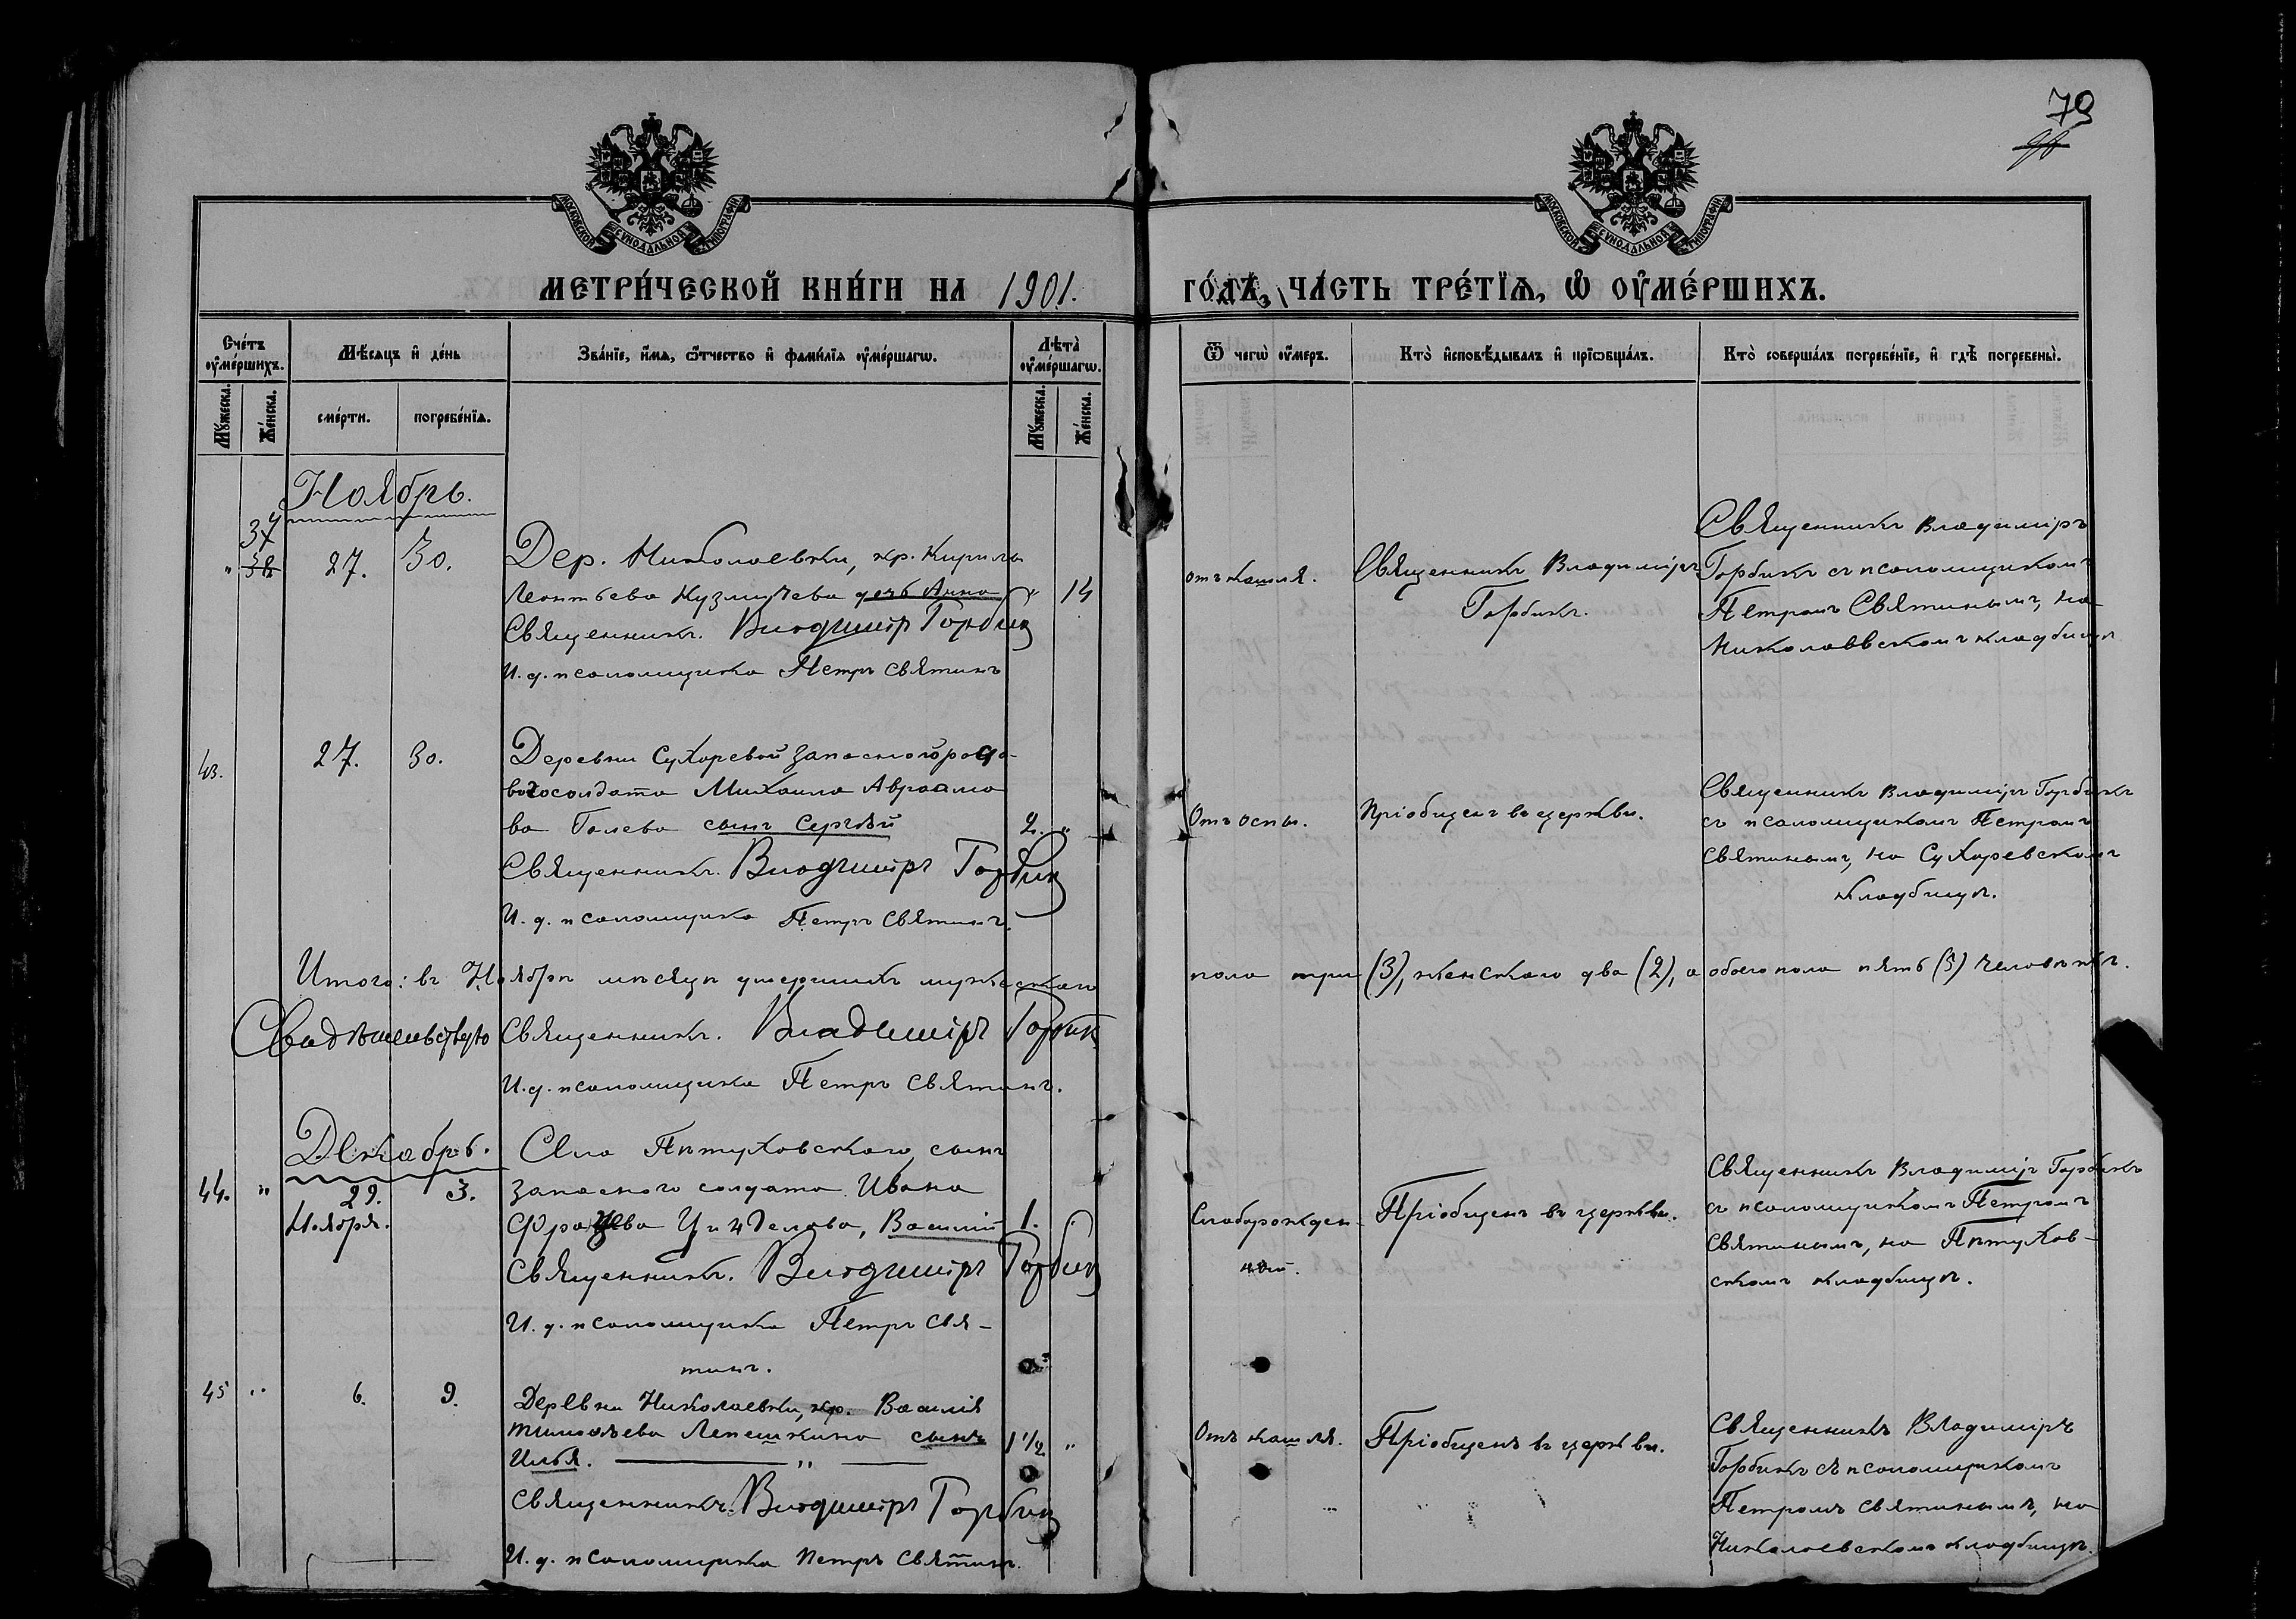 79
96
МОСКОВСКОЙ СѴНОДАЛЬНОЙ ТИПОГРАФІИ
МОСКОВСКОЙ СѴНОДАЛЬНОЙ ТИПОГРАФІИ
МЕТРИ́ЧЕСКОЙ КНИ́ГИ НА 1901. ГО́ДЪ, ЧА́СТЬ ТРЕ́ТЇѦ, Ѡ ОУ҆МЕ́РШИХЪ.
Сче́тъ оу҆ме́ршихъ.
Мѣ́сѧцъ и҆ де́нь
Зва́нїе, и҆́мѧ, ѻ҆́тчество и҆ фами́лїѧ оу҆ме́ршагѡ.
Лѣ́та оу҆ме́ршагѡ.
Ѿ чегѡ̀ оу҆́меръ.
Кто̀ и҆сповѣ́дывалъ и҆ прїѡбща́лъ.
Кто̀ соверша́лъ погребе́нїе, и҆ гдѣ̀ погребены̀.
Мꙋ́жеска.
Же́нска.
сме́рти.
погребе́нїѧ.
Мꙋ́жеска.
Же́нска.
Ноябрь.
" 38 27. 30. Дер. Николаевки, кр. Кирила
Леонтьева Кузмичева дочь Анна " 14
Священникъ. Владиміръ Горбикъ
И. д. псаломщика Петръ Святинъ
отъ кашля.
Священникъ Владиміръ
Горбикъ.
Священникъ Владиміръ
Горбикъ съ псаломщикомъ
Петромъ Святинымъ, на
Николаевскомъ кладбищѣ
43. 27. 30. Деревни Сухоревой запасного рядо-
вого солдата Михаила Авраамо
ва Галева сынъ Сергѣй 2. "
Священникъ. Владиміръ Горбикъ
И. д. псаломщика Петръ Святинъ.
Отъ оспы.
Пріобщенъ въ церкви.
Священникъ Владиміръ Горбикъ
съ псаломщикомъ Петромъ
Святинымъ, на Сухоревскомъ
кладбищѣ.
Итого: въ Ноябрѣ мѣсяцѣ умершихъ мужескаго пола три (3), женскаго два (2), а обоего пола пять (5) человѣкъ.
Свидѣтельствую Священникъ. Владиміръ Горбикъ
И. д. псаломщика Петръ Святинъ.
Декабрь. Села Пѣтуховскаго, сынъ
44. " 29. 3. запасного солдата Ивана
Ноября.
Василій 1.
Священникъ. Владиміръ Горбикъ
И. д. псаломщика Петръ Свя-
тинъ.
Слаборожден-
ный.
Пріобщенъ въ церкви.
Священникъ Владиміръ Горбикъ
съ псаломщикомъ Петромъ
Святинымъ, на Пѣтухов-
скомъ кладбищѣ.
45 " 6. 9. Деревни Николаевки, кр. Василія
Тимофеева Лепешкина сынъ 1 1/2 "
Илья. — " —
Священникъ. Владиміръ Горбикъ
И. д. псаломщика Петръ Святинъ.
Отъ кашля.
Пріобщенъ въ церкви.
Священникъ Владиміръ
Горбикъ съ псаломщикомъ
Петромъ Святинымъ, на
Николаевскомъ кладбищѣ.